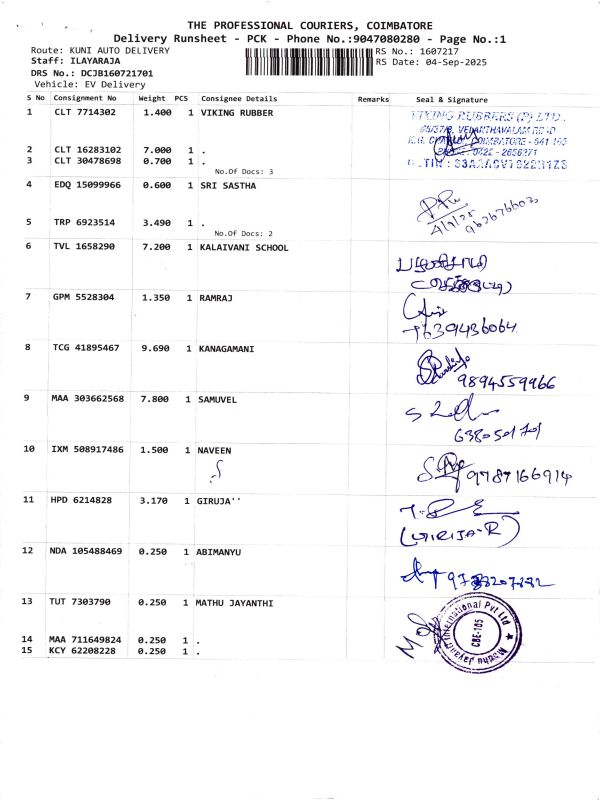 THE PROFESSIONAL COURIERS, COIMBATORE
Delivery Runsheet - PCK - Phone No.:9047080280 - Page No.:1
Route: KUNI AUTO DELIVERY
RS No.: 1607217
Staff: ILAYARAJA
RS Date: 04-Sep-2025
DRS No.: DCJB160721701
Vehicle: EV Delivery
S No Consignment No Weight PCS Consignee Details Remarks Seal & Signature
1 CLT 7714302 1.400 1 VIKING RUBBER
VIKING RUBBERS (P) LTD.,
2 CLT 16283102 7.000 1 .
3 CLT 30478698 0.700 1 .
No.Of Docs: 3
4 EDQ 15099966 0.600 1 SRI SASTHA
4/9/25
5 TRP 6923514 3.490 1 .
No.Of Docs: 2
6 TVL 1658290 7.200 1 KALAIVANI SCHOOL
7 GPM 5528304 1.350 1 RAMRAJ
7639436064
8 TCG 41895467 9.690 1 KANAGAMANI
9894559966
9 MAA 303662568 7.800 1 SAMUVEL
10 IXM 508917486 1.500 1 NAVEEN
9787166914
11 HPD 6214828 3.170 1 GIRUJA''
(GIRIJA-R)
12 NDA 105488469 0.250 1 ABIMANYU
13 TUT 7303790 0.250 1 MATHU JAYANTHI
Mathu Jayanthi International Pvt Ltd
CBE-105
14 MAA 711649824 0.250 1 .
15 KCY 62208228 0.250 1 .